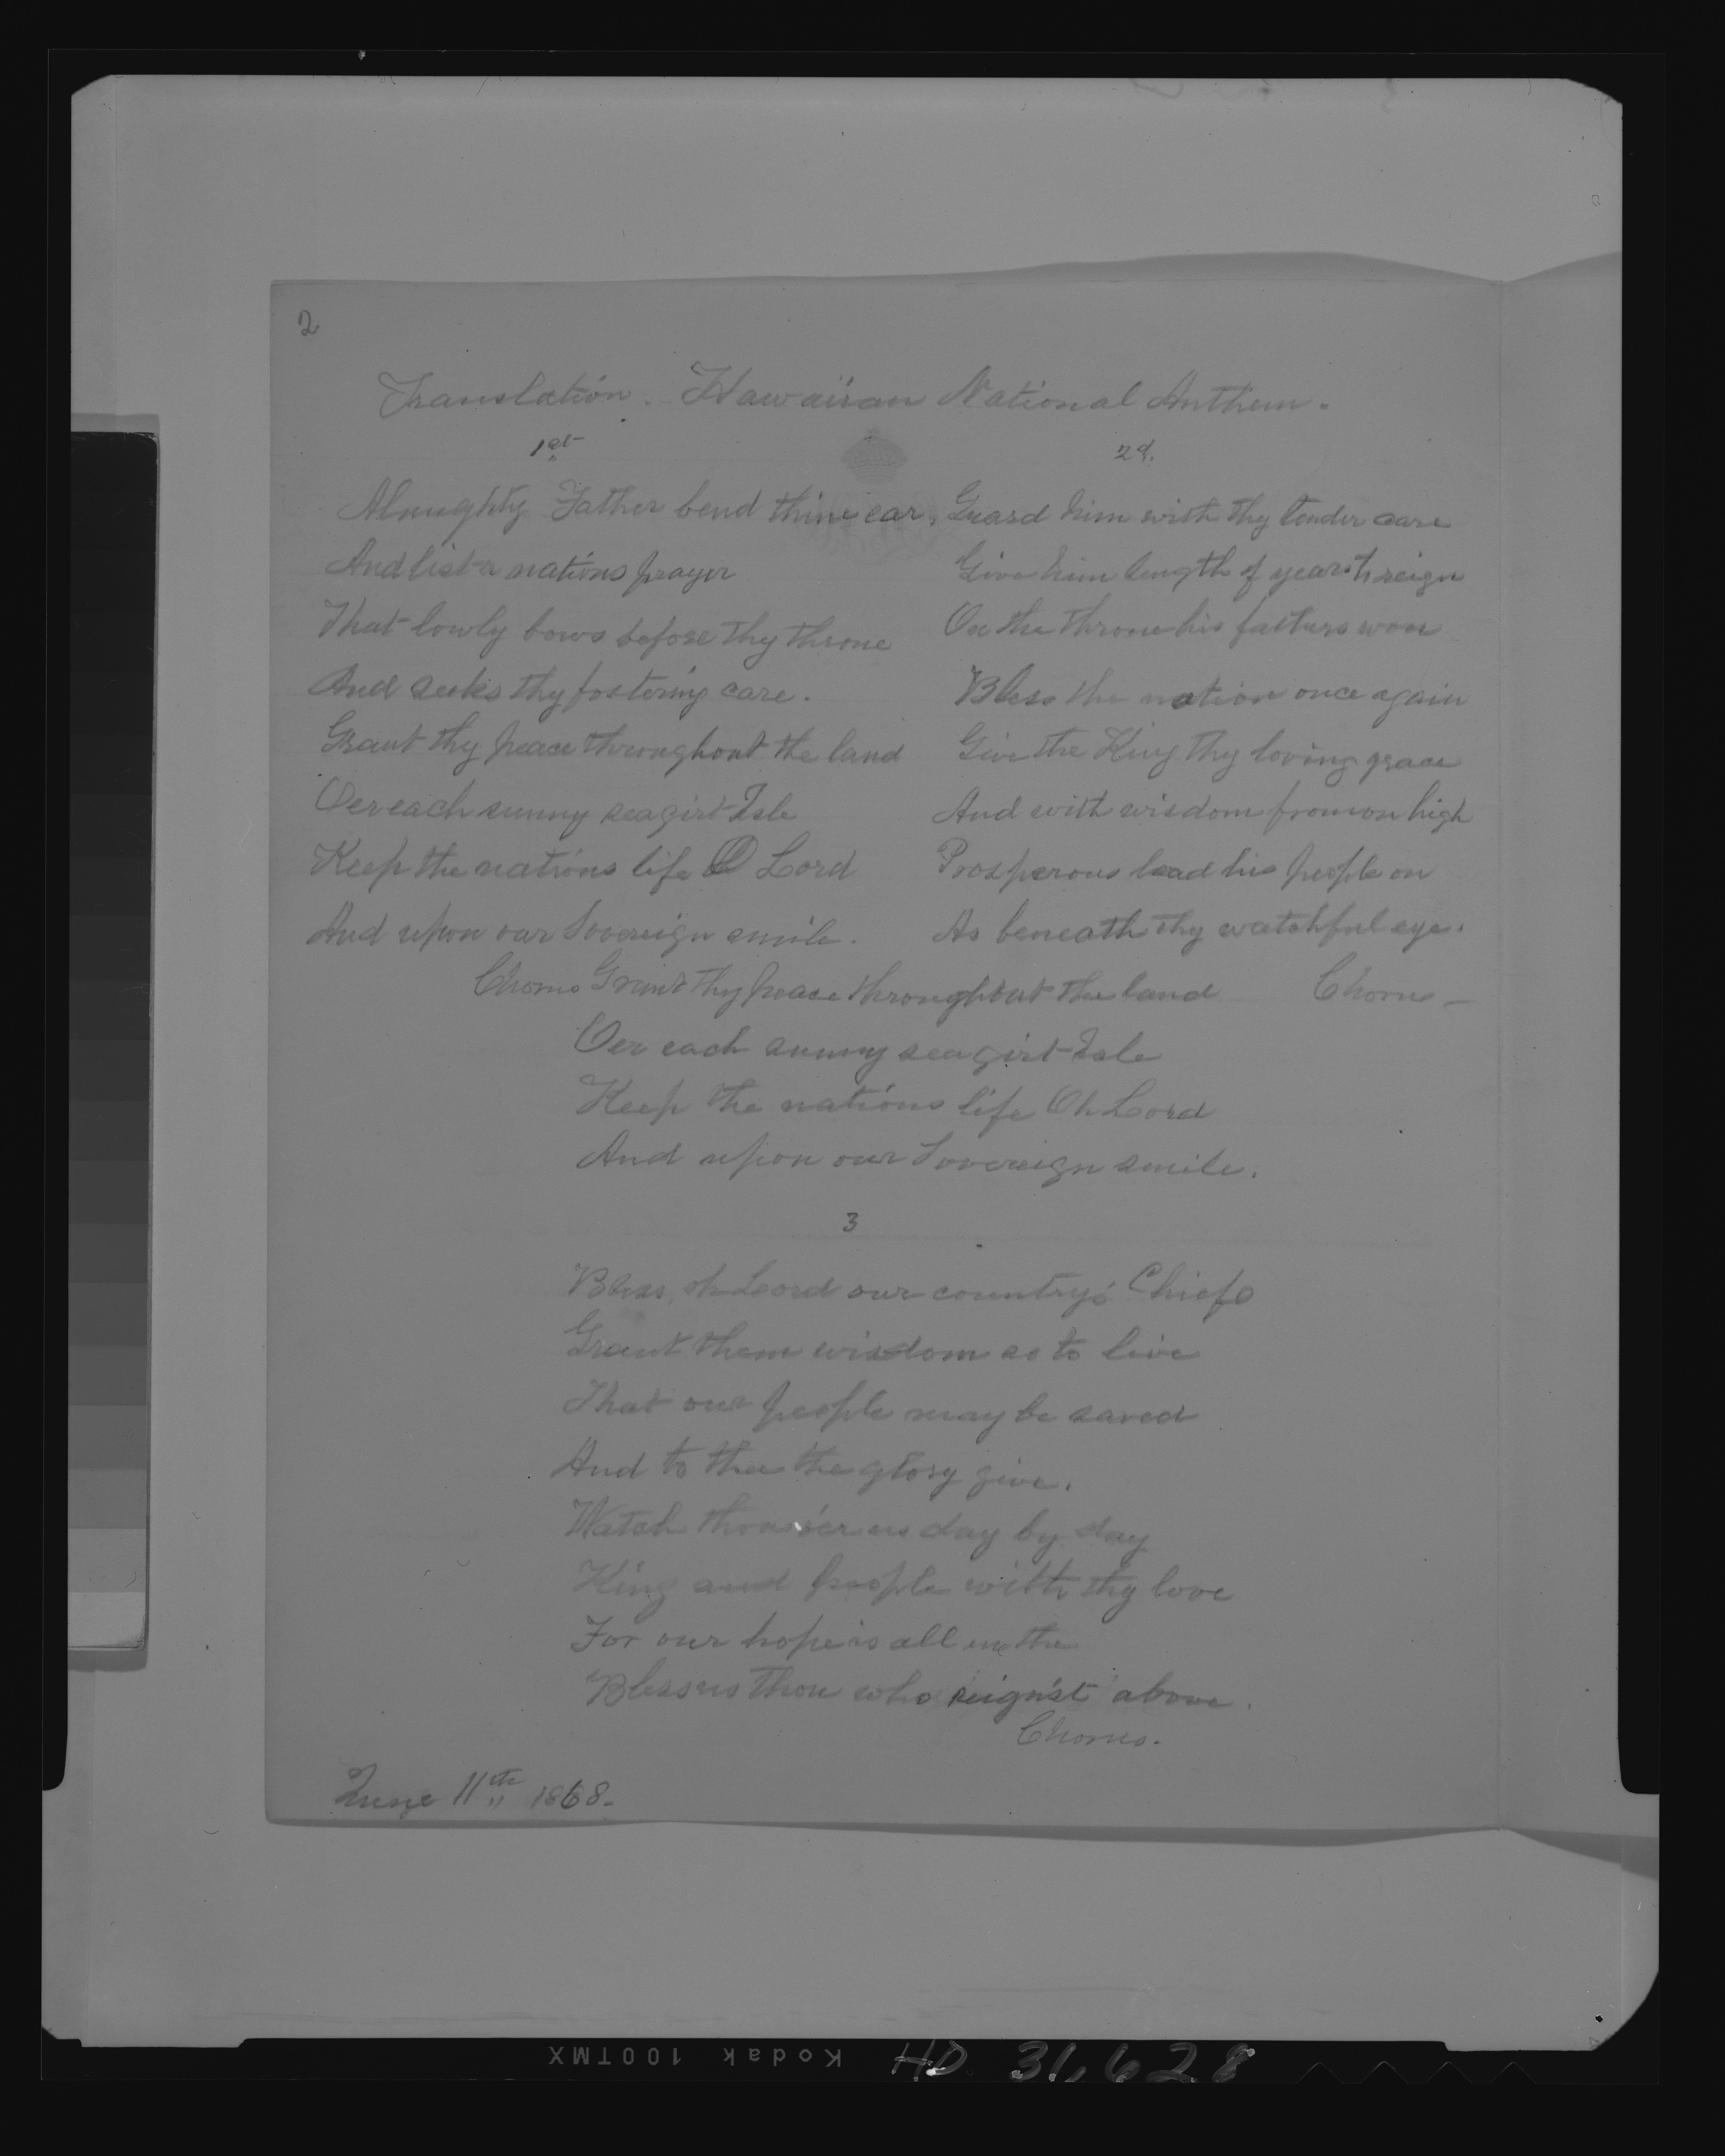 2
Translation. Hawaiian National Anthem.
1st
Almighty Father bend thine ear,
And list a nations prayer
That lowly bows before thy throne
And seeks thy fostering care.
Grant thy peace throughout the land
Oer each sunny sea girt Isle
Keep the nations life O Lord
And upon our Sovereign smile.
Chorus Grant thy peace throughout the land
Oer each sunny sea girt Isle
Keep the nations life Oh Lord
And upon our Sovereign smile.
2d.
Guard him with thy tender care
Give him length of years to reign
On the throne his fathers won
Bless the nation once again
Give the King thy loving grace
And with wisdom from on high
Prosperous lead his people on
As beneath thy watchful eye.
Chorus –
3
Bless, oh Lord our country's Chiefs
Grant them wisdom so to live
That our people may be saved
And to thee the glory give.
Watch thou o'er us day by day
King and people with thy love
For our hope is all in the
Bless us thou who reign'st above.
Chorus.
June 11th 1868.
Kodak 100TMX
HD 31,628